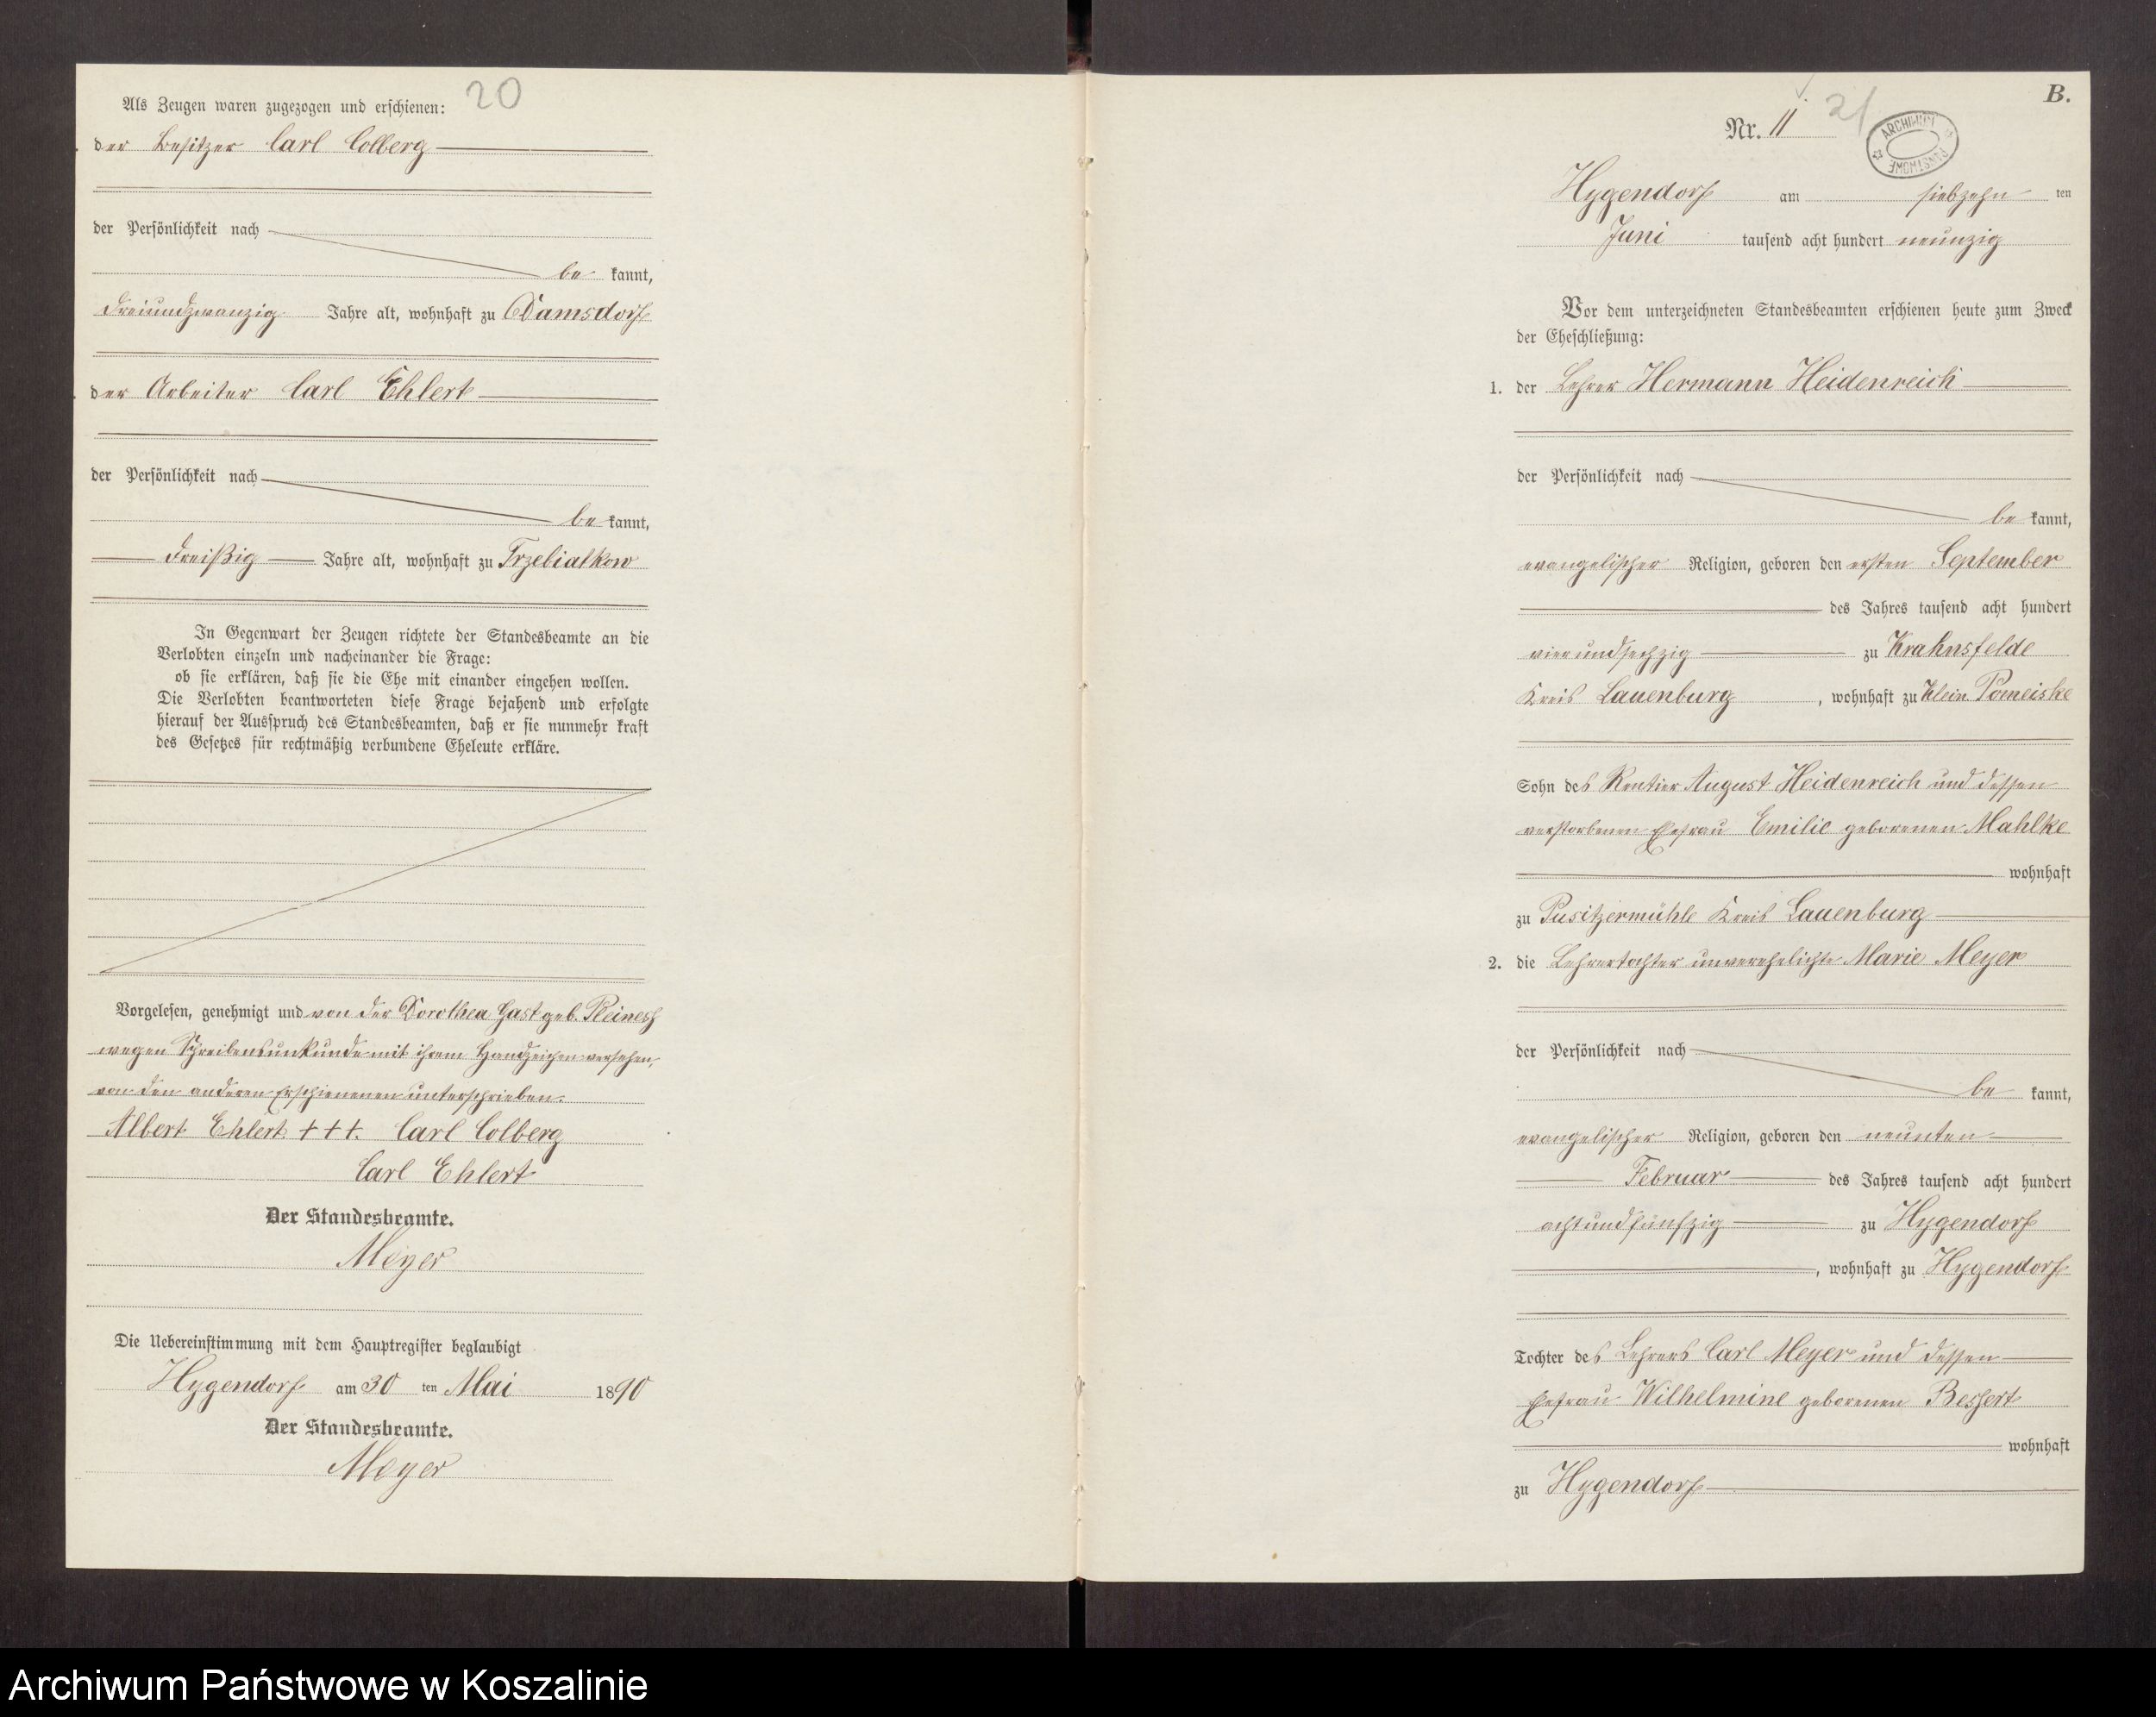 20
Als Zeugen waren zugezogen und erschienen:
der Besitzer Carl Colberg
der Persönlichkeit nach
be kannt,
dreiundzwanzig Jahre alt, wohnhaft zu Damsdorf
der Arbeiter Carl Ehlert
der Persönlichkeit nach
be kannt,
dreißig Jahre alt, wohnhaft zu Trzebiatkow
In Gegenwart der Zeugen richtete der Standesbeamte an die
Verlobten einzeln und nacheinander die Frage:
ob sie erklären, daß sie die Ehe mit einander eingehen wollen.
Die Verlobten beantworteten diese Frage bejahend und erfolgte
hierauf der Ausspruch des Standesbeamten, daß er sie nunmehr kraft
des Gesetzes für rechtmäßig verbundene Eheleute erkläre.
Vorgelesen, genehmigt und von der Dorothea Gast geb.
wegen Schreibensunkunde mit ihrem Handzeichen versehen,
von den anderen Erschienenen unterschrieben.
Albert Ehlert. +++. Carl Colberg
Carl Ehlert
Der Standesbeamte.
Meyer
Die Uebereinstimmung mit dem Hauptregister beglaubigt
Hygendorf am 30 ten Mai 1890
Der Standesbeamte.
Meyer
B.
Nr. 11
21
ARCHIWUM PAŃSTWOWE
Hygendorf am siebzehn ten
Juni tausend acht hundert neunzig
Vor dem unterzeichneten Standesbeamten erschienen heute zum Zweck
der Eheschließung:
1. der Lehrer Hermann Heidenreich
der Persönlichkeit nach
be kannt,
evangelischer Religion, geboren den ersten September
des Jahres tausend acht hundert
vierundsechzig zu Krahnsfelde
Kreis Lauenburg, wohnhaft zu Klein Pomeiske
Sohn des Rentier August Heidenreich und dessen
verstorbenen Ehefrau Emilie geborenen Mahlke
wohnhaft
zu Pusitzermühle Kreis Lauenburg
2. die Lehrertochter unverehelichte Marie Meyer
der Persönlichkeit nach
be kannt,
evangelischer Religion, geboren den neunten
Februar des Jahres tausend acht hundert
achtundfünfzig zu Hygendorf
, wohnhaft zu Hygendorf
Tochter des Lehrers Carl Meyer und dessen
Ehefrau Wilhelmine geborenen Bessert
wohnhaft
zu Hygendorf
Archiwum Państwowe w Koszalinie